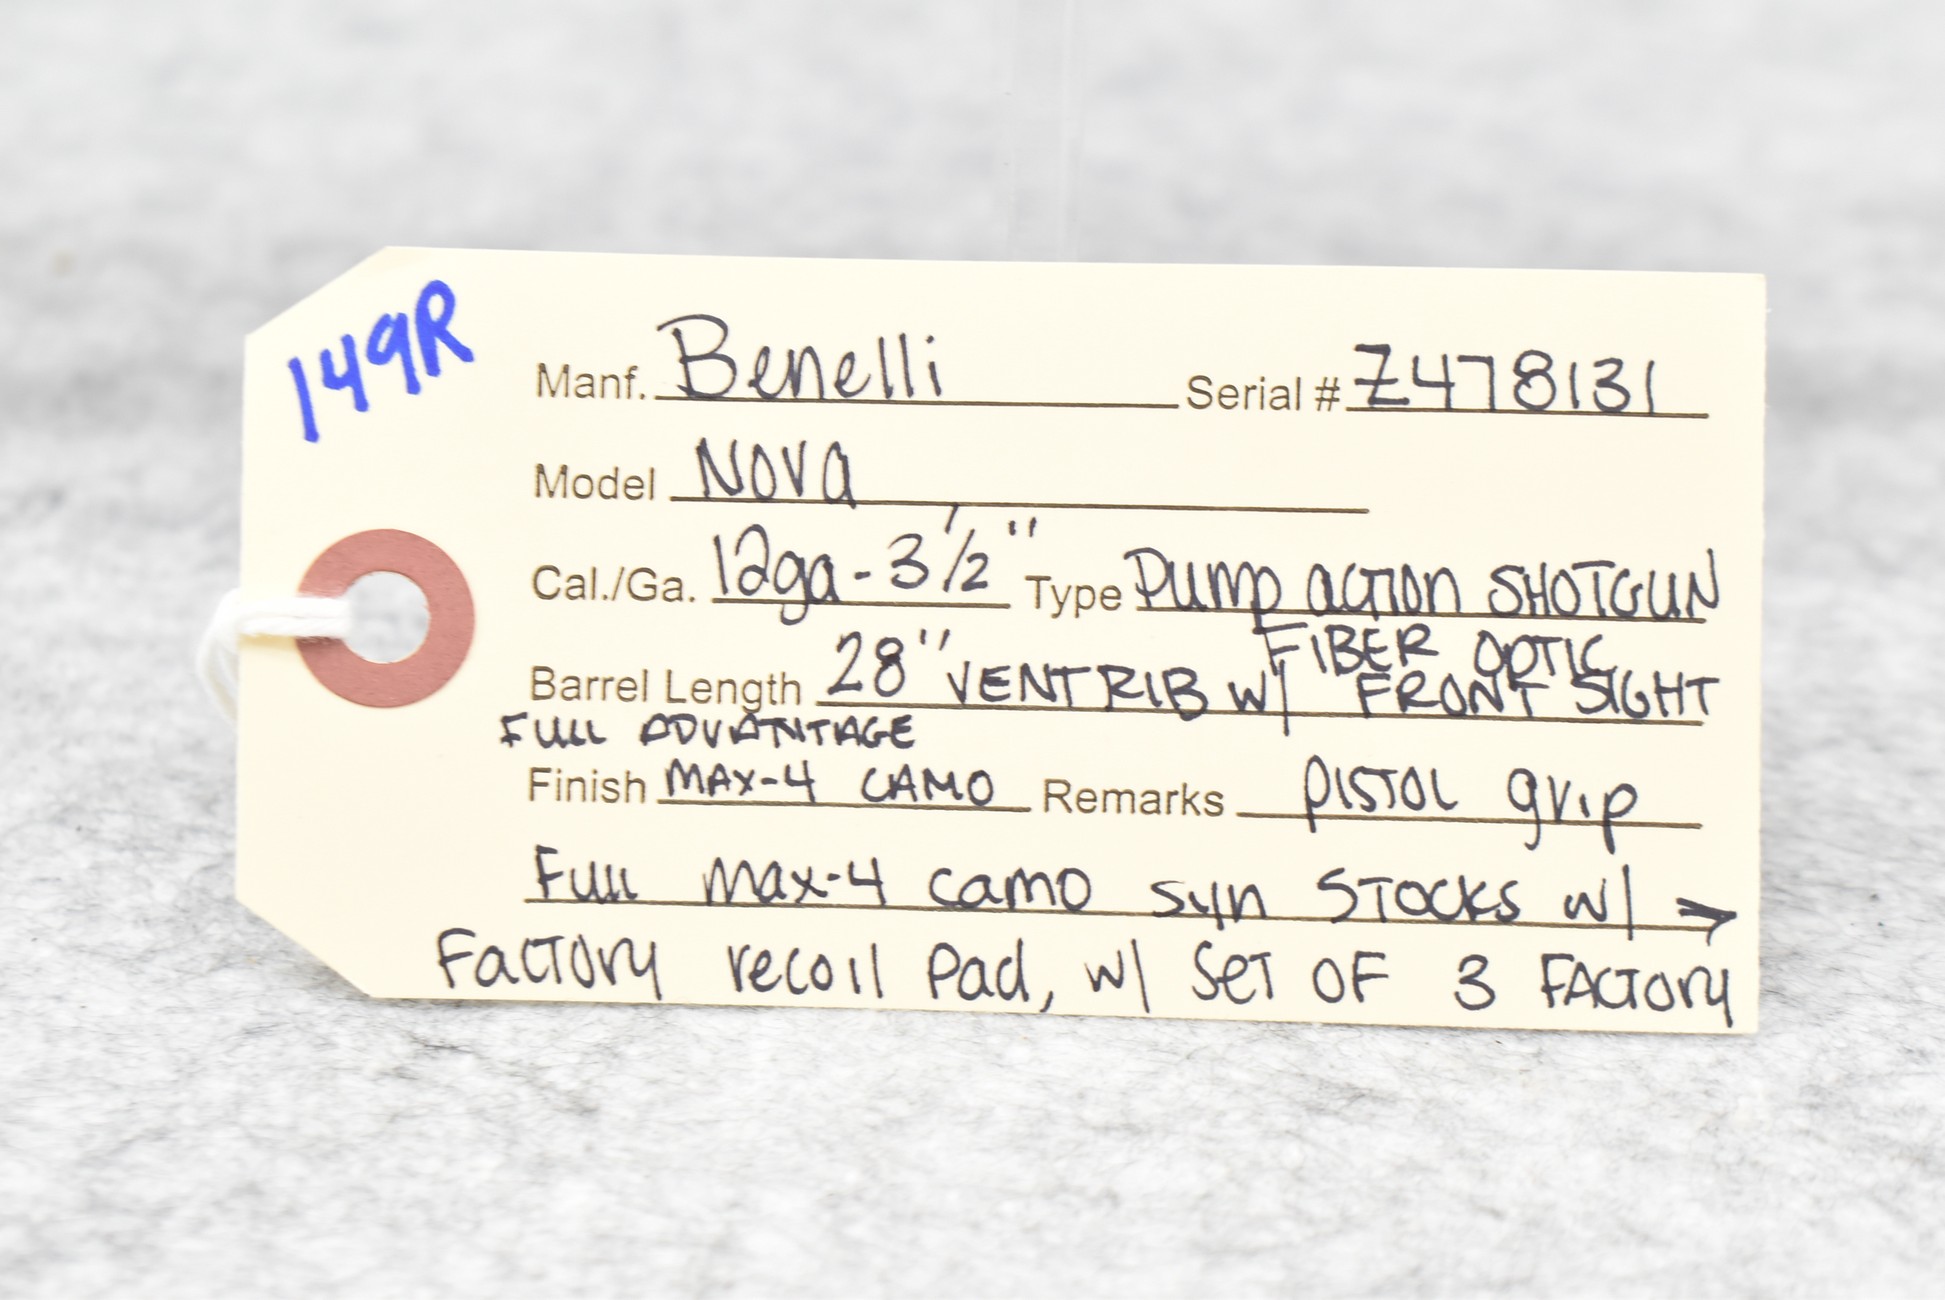 149R
Manf. Benelli Serial # Z478131
Model Nova
Cal./Ga. 12ga - 3 1/2" Type Pump action SHOTGUN
FIBER OPTIC
Barrel Length 28" VENT RIB w/ FRONT SIGHT
FULL ADVANTAGE
Finish MAX-4 CAMO Remarks PISTOL grip
Full Max-4 camo syn STOCKS w/ →
Factory recoil Pad, w/ SET OF 3 FACTORY